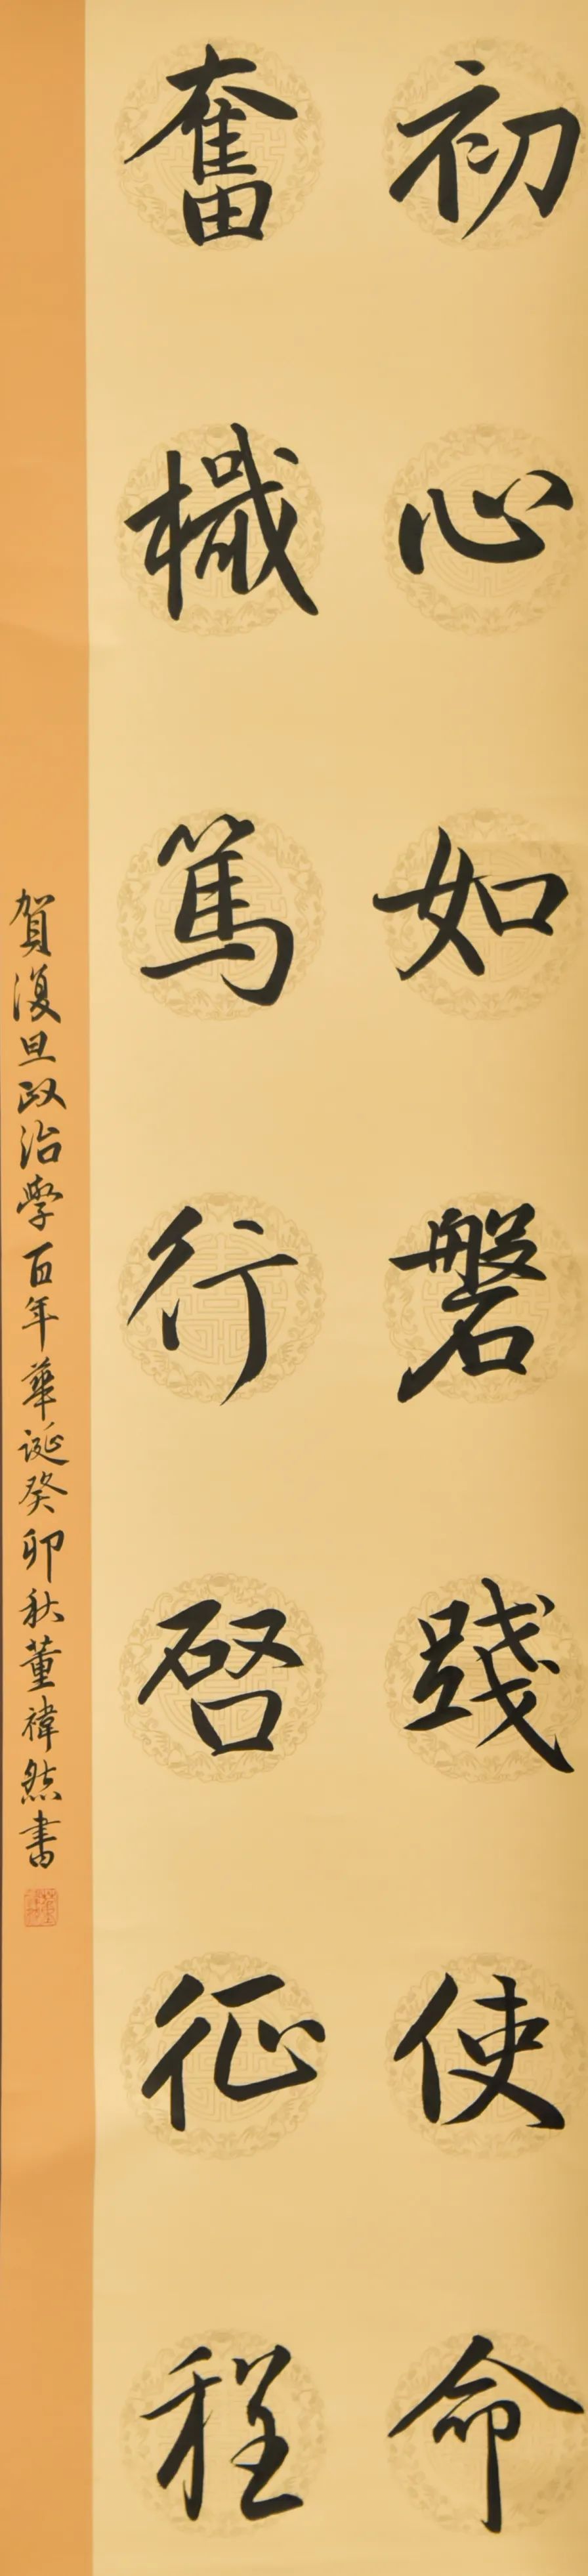 初心如磐踐使命
奮楫篤行啓征程
賀復旦政治學百年華誕癸卯秋董禕然書